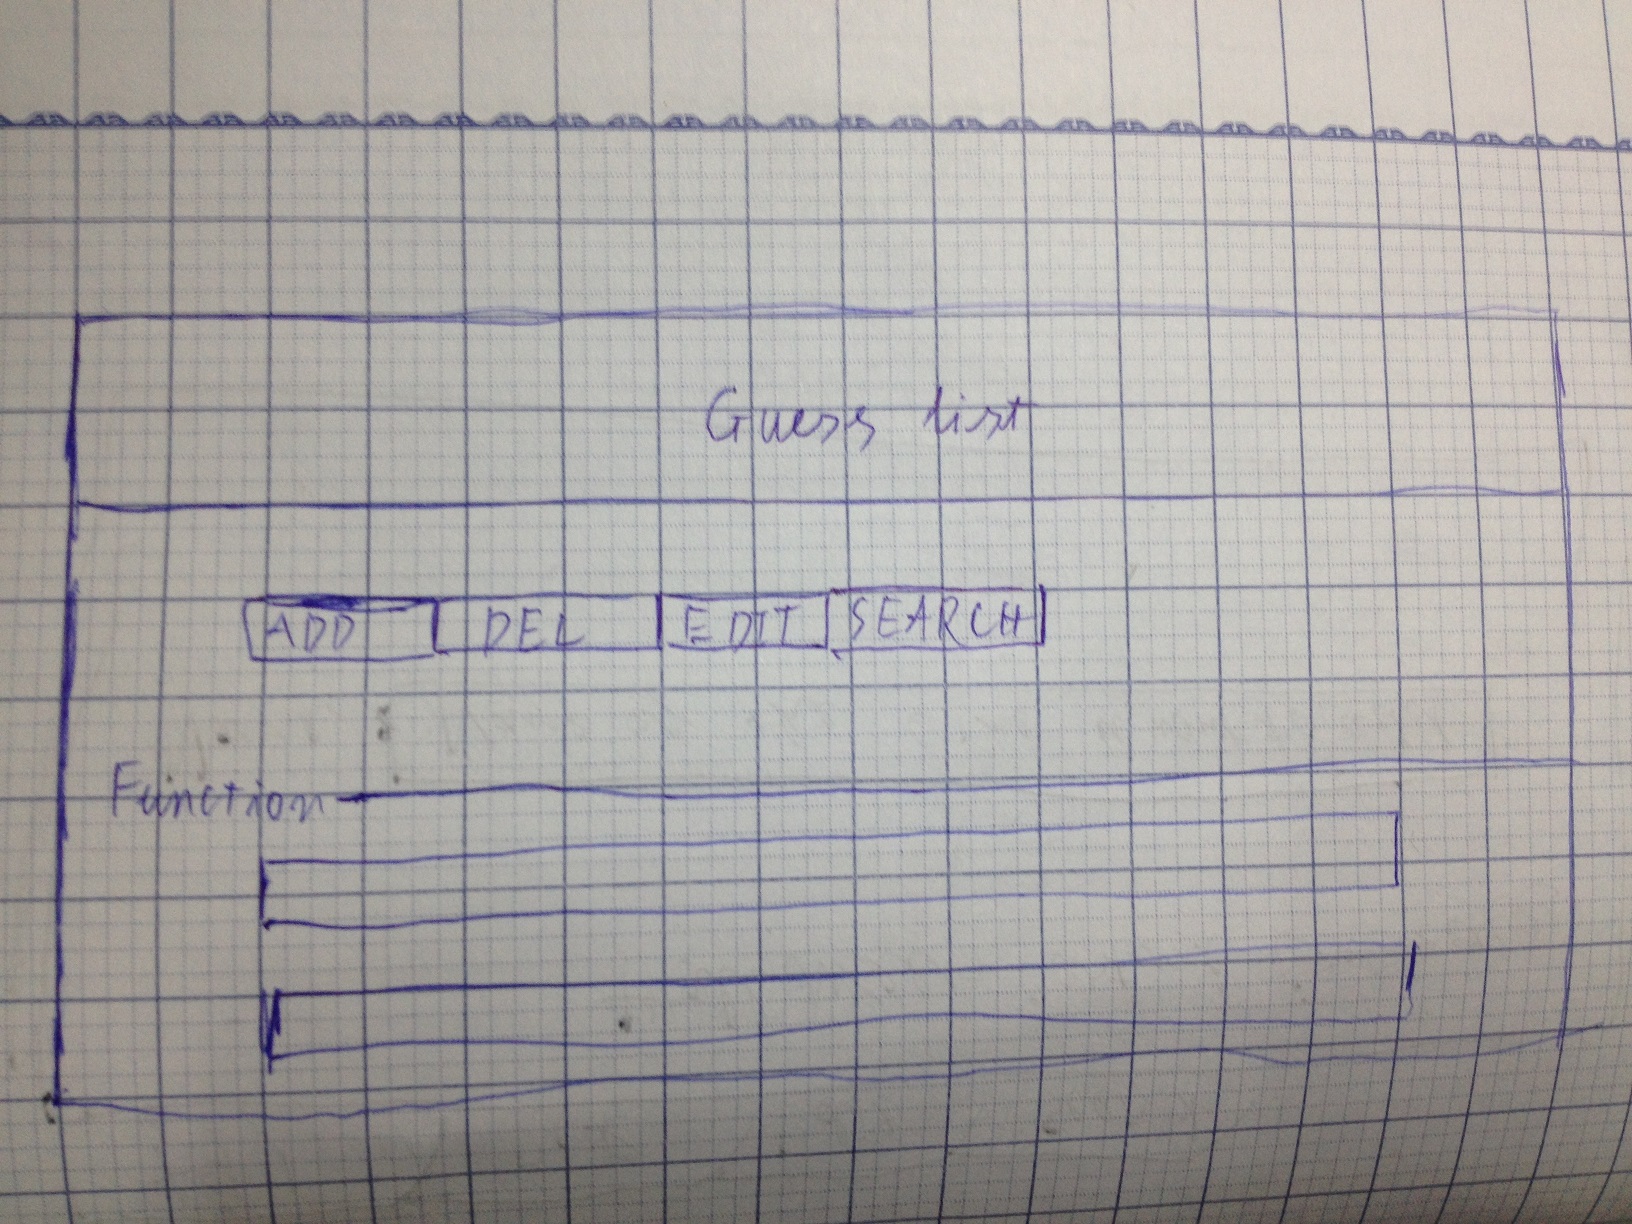 Guess list
ADD DEL EDIT SEARCH
Function